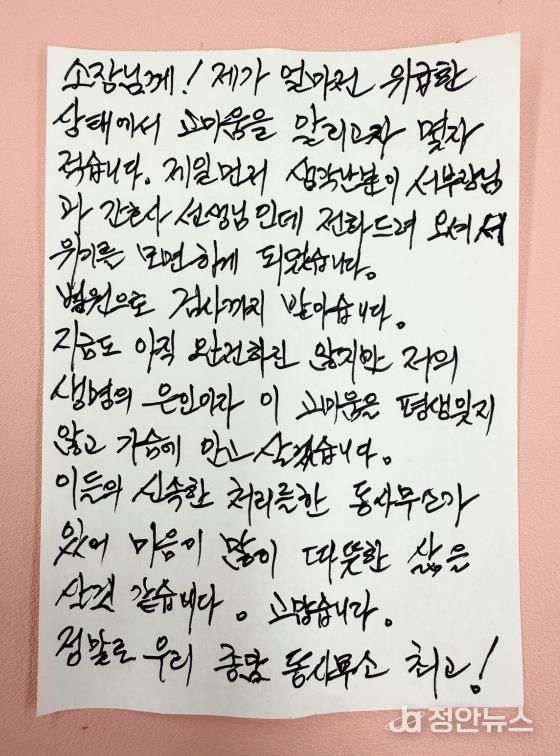 소장님께! 제가 얼마전 위급한
상태에서 고마움을 알리고자 몇자
적습니다. 제일먼저 생각난분이 서부장님
과 간호사 선생님인데 전화드려 오셔서
위기를 모면하게 되었습니다.
병원으로 검사까지 받아습니다.
지금도 아직 완전하진 않지만 저의
생명의 은인이라 이 고마움을 평생잊지
않고 가슴에 안고 살겠습니다.
이들의 신속한 처리를한 동사무소가
있어 마음이 많이 따뜻한 삶을
산것 같습니다. 고맙습니다.
정말로 우리 종암 동사무소 최고!
정안뉴스